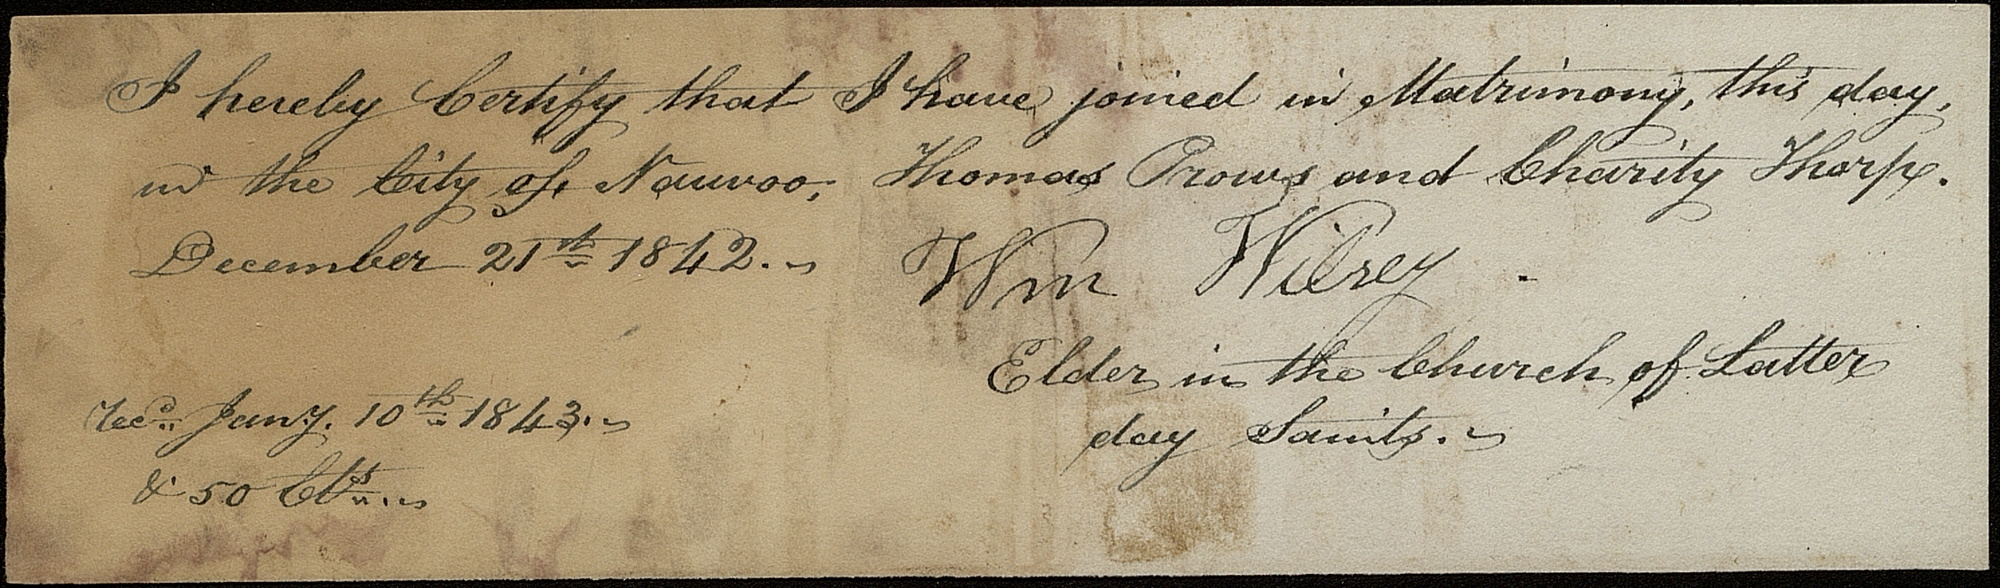 I hereby Certify that I have joined in Matrimony, this day,
in the City of Nauvoo, Thomas Prows and Charity Thorp.
December 21th 1842. Wm Wilsey
Elder in the Church of Latter
day Saints.
Recd Jany. 10th 1843.
& 50 Cts.